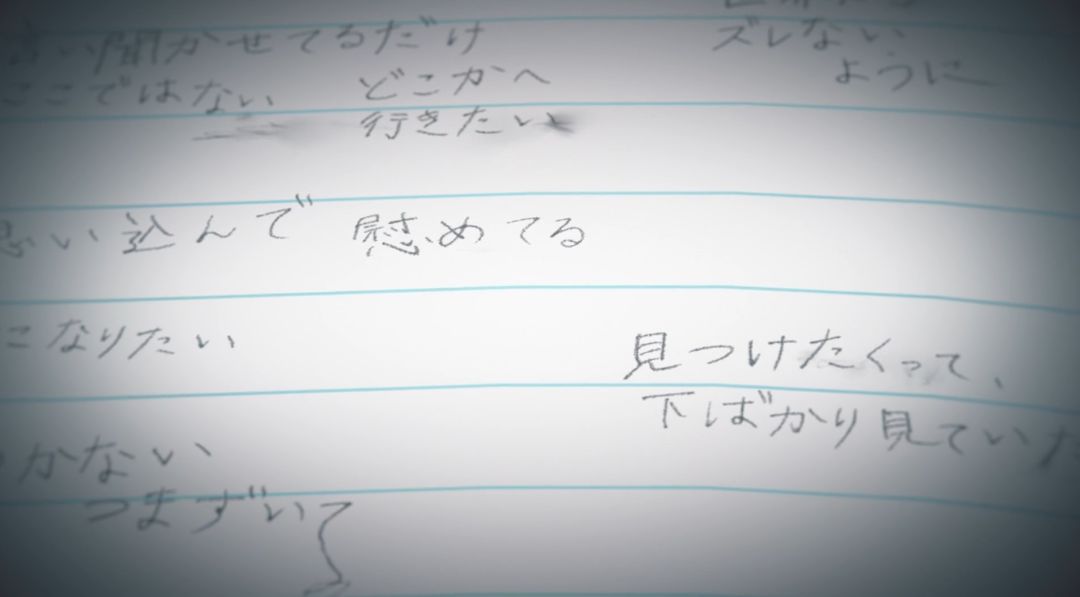 言い聞かせてるだけ
ズレない
ように
ここではない どこかへ
行きたい
思い込んで 慰めてる
になりたい
見つけたくって、
下ばかり見ていた
かない
つまずいて